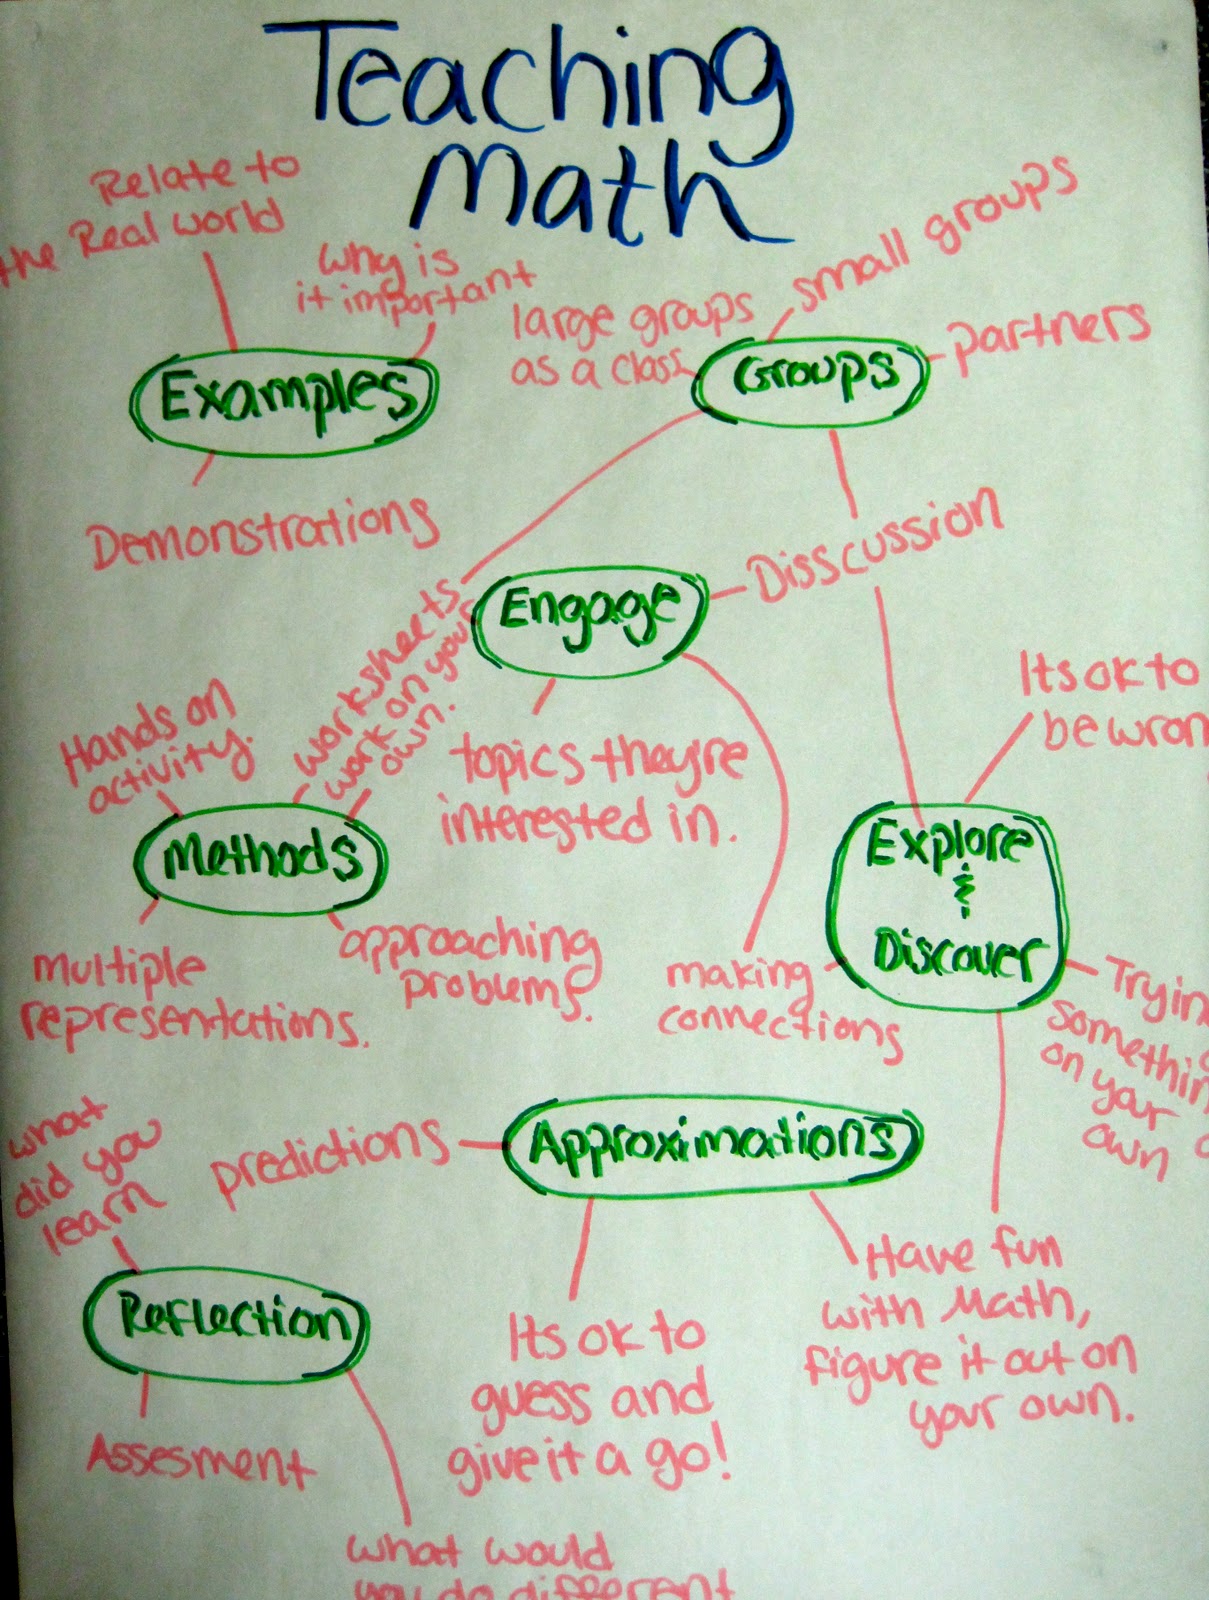 Teaching
Math
Relate to
the Real world
why is
it important
Examples
Demonstrations
large groups
as a class
small groups
partners
Groups
Disscussion
Engage
topics theyre
interested in.
making
connections
worksheets
work on your
own.
Hands on
activity.
Methods
multiple
representations.
approaching
problems.
Its ok to
be wron
Explore
&
Discover
Tryin
somethin
on your
own
Have fun
with Math,
figure it out on
your own.
Approximations
predictions
Its ok to
guess and
give it a go!
what
did you
learn
Reflection
Assesment
what would
you do different